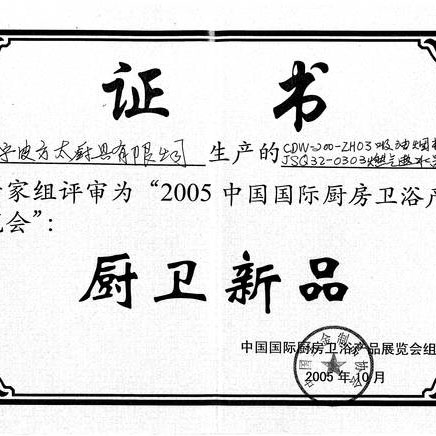 证 书
宁波方太厨具有限公司 生产的 CDW-200-ZH03吸油烟机
JSQ32-0303燃气热水器
家组评审为“2005中国国际厨房卫浴产
会”:
厨卫新品
中国国际厨房卫浴产品展览会组
2005年10月